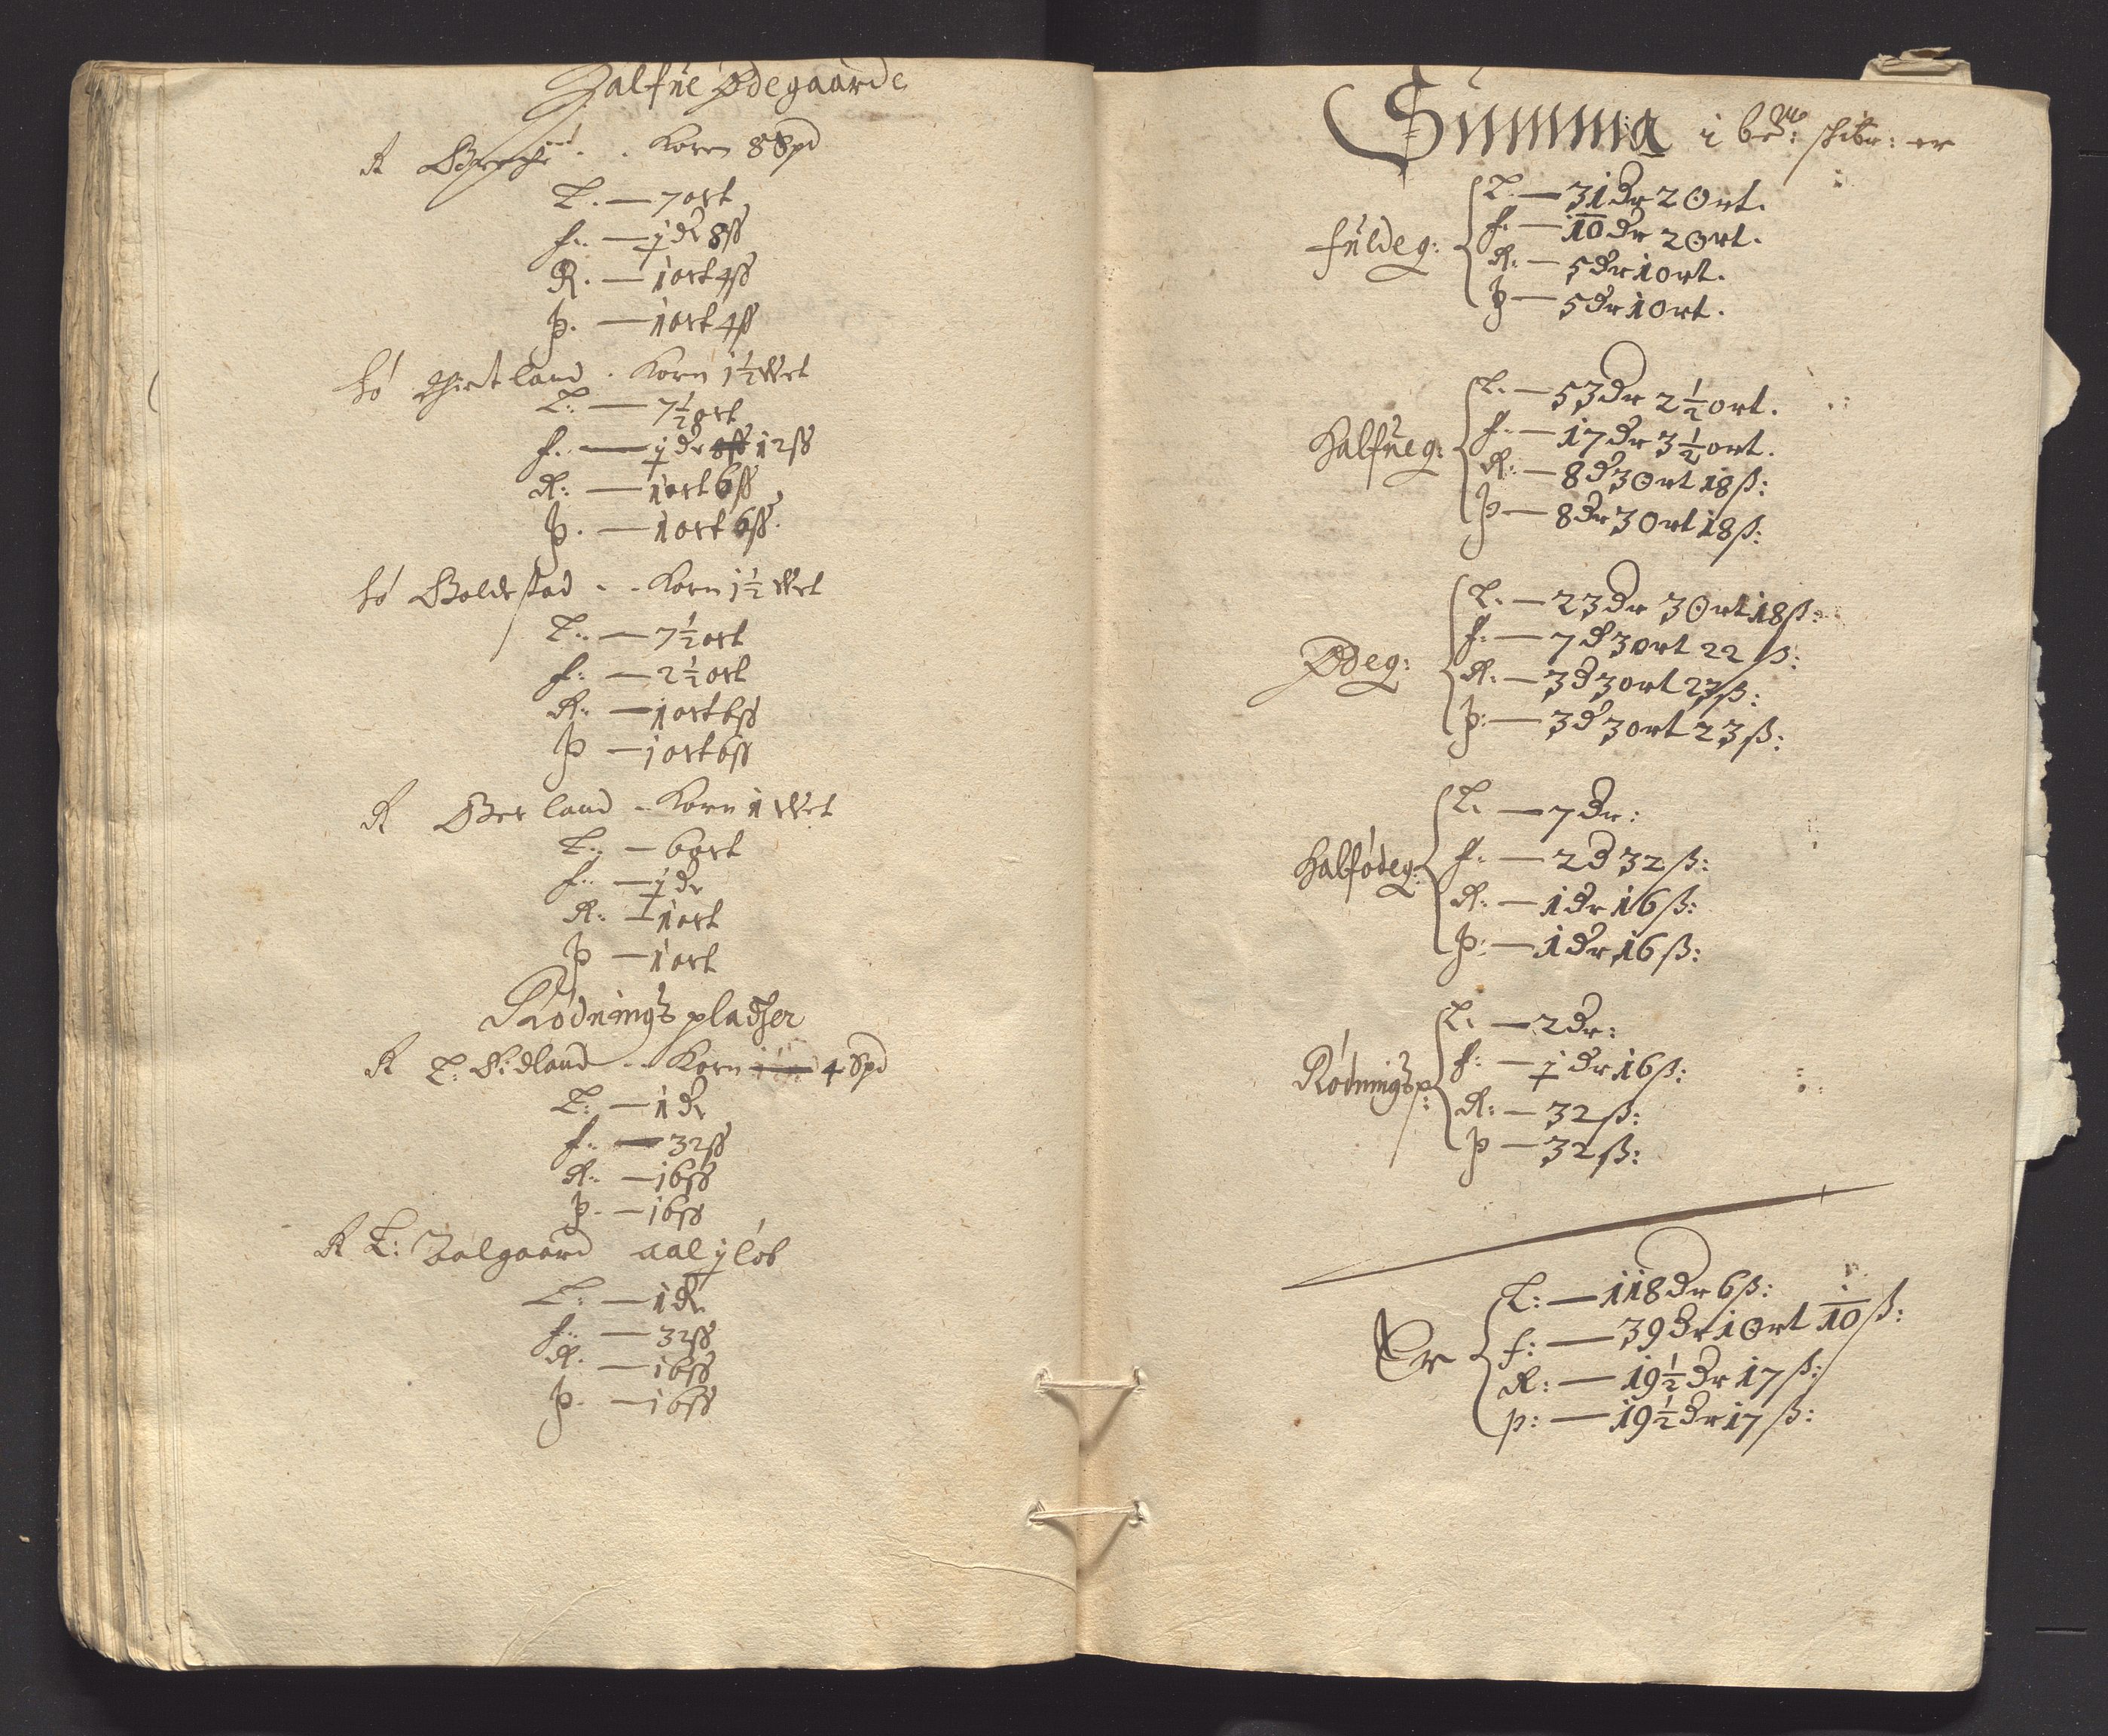 Halfue Ødegaarde
R - - Korn 8 Spd
L. — 7 ort
f.. — j dr 8 ß
R. — 1 ort 4 ß
Þ. — 1 ort 4 ß
land . Korn 1½ Wet
L: — 7½ ort
f.. — j dr 8ß 12 ß
R: — 1 ort 6 ß
Þ. — 1 ort 6 ß
stad - - Korn 1½ Wet
L.. — 7½ ort
f: — 2½ ort
R: — 1 ort 6 ß
Þ — 1 ort 6 ß
R land - Korn 1 Wet
L: — 6 ort
f.. — j dr
R: — 1 ort
Þ — 1 ort
Rødnings pladser
R L: Sidland - - Korn 4 Spd
L: — 1 dr
f.. — 32 ß
R: — 16 ß
Þ. — 16 ß
R L: Zalgaard aal j løb
L: — 1 dr
f.. — 32 ß
R. — 16 ß
Þ. — 16 ß
Summa i bete: skibr: er
fuldeg: L. — 31 dr 2 Ort.
f. — 10 dr 2 Ort.
R: — 5 dr 1 ort.
Þ — 5 dr 1 Ort.
Halfueg: L. — 53 dr 2½ ort.
f. — 17 dr 3½ ort.
R: — 8 d 3 Ort 18 ß:
Þ — 8 dr 3 Ort 18 ß:
Ødeg: L. — 23 dr 3 Ort 18 ß:
f. — 7 d 3 ort 22 ß:
R. — 3 d 3 ort 23 ß:
Þ: — 3 d 3 ort 23 ß:
Halfødeg: L. — 7 dr:
f. — 2 d 32 ß:
R: — 1 dr 16 ß:
Þ: — 1 dr 16 ß:
Rødningsp: L. — 2 dr:
f: — j dr 16 ß:
R: — 32 ß:
Þ — 32 ß:
Er L: — 118 dr 6 ß:
f: — 39 dr 1 Ort 10 ß:
R: — 19½ dr 17 ß:
p: — 19½ dr 17 ß: